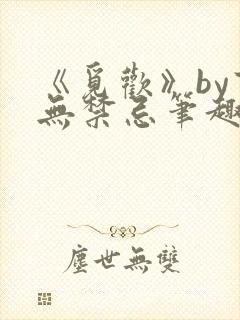 《覓歡》by
無禁忌筆趣
塵世無雙